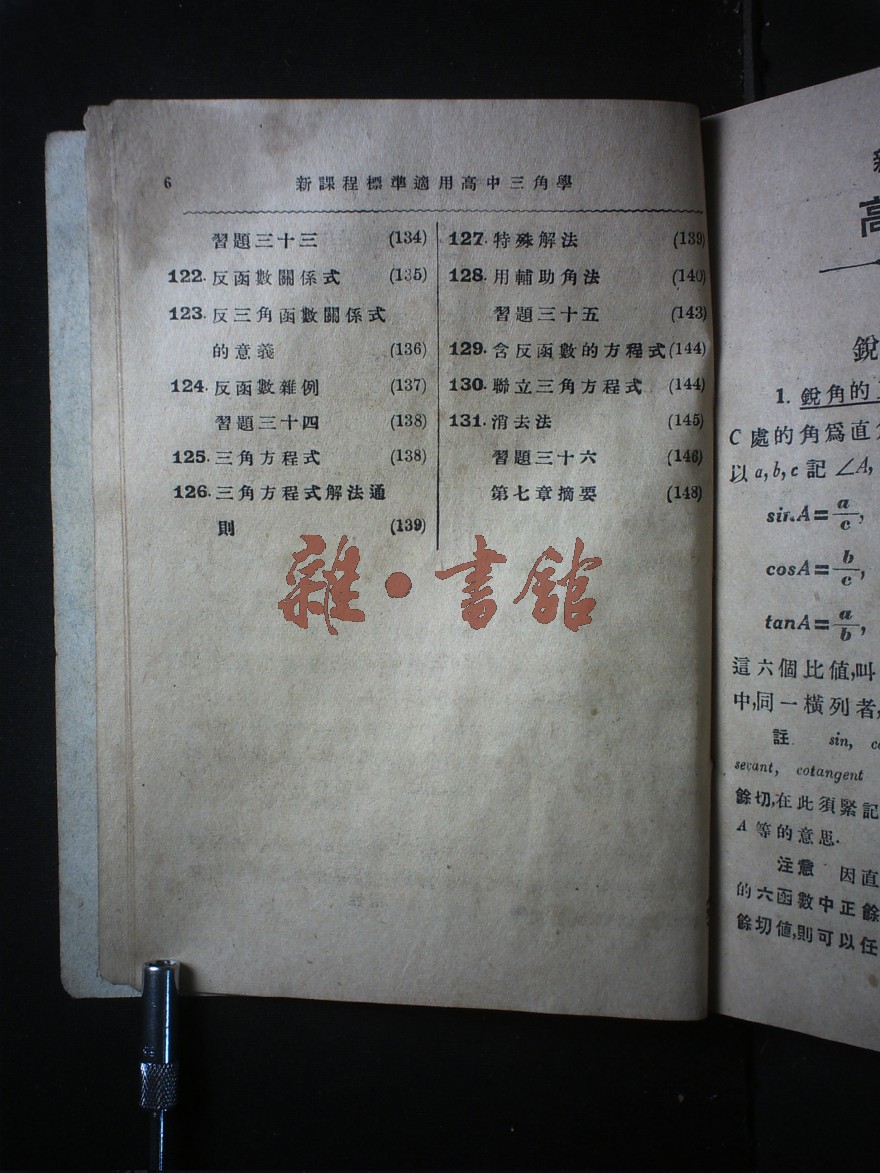 6 新課程標準適用高中三角學
習題三十三 (134)
122. 反函數關係式 (135)
123. 反三角函數關係式
的意義 (136)
124. 反函數雜例 (137)
習題三十四 (138)
125. 三角方程式 (138)
126. 三角方程式解法通
則 (139)
127. 特殊解法 (139)
128. 用輔助角法 (140)
習題三十五 (143)
129. 含反函數的方程式 (144)
130. 聯立三角方程式 (144)
131. 消去法 (145)
習題三十六 (146)
第七章摘要 (148)
雜·書館
高
銳
1. 銳角的
C 處的角爲直
以 a, b, c 記 ∠A,
sin A = a/c,
cos A = b/c,
tan A = a/b,
這六個比値,叫
中,同一橫列者,
註 sin, co
secant, cotangent
餘切,在此須緊記
A 等的意思.
注意 因直
的六函數中正餘
餘切値,則可以任